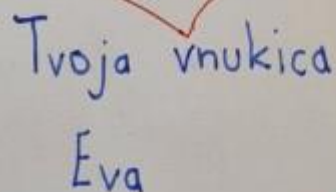 Tvoja vnukica
Eva